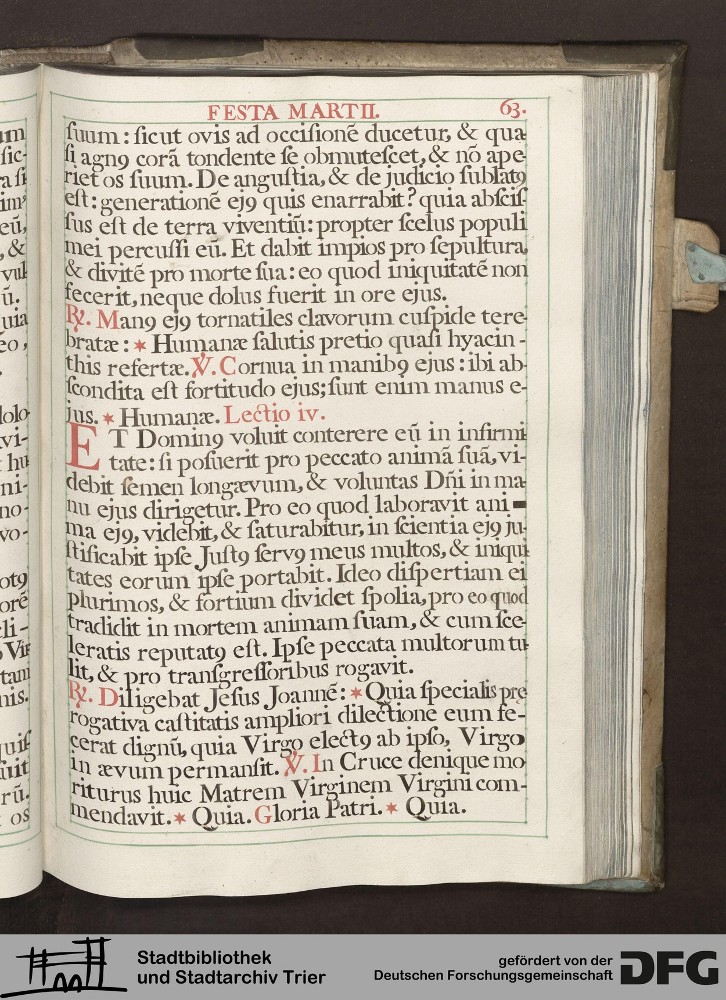 FESTA MARTII. 63.
ſuum : ſicut ovis ad occiſionē ducetur, & qua
ſi agnꝯ corā tondente ſe obmuteſcet, & nō ape-
riet os ſuum. De anguſtia, & de judicio ſublatꝯ
eſt : generationē ejꝯ quis enarrabit? quia abſciſ
ſus eſt de terra viventiū : propter ſcelus populi
mei percuſſi eū. Et dabit impios pro ſepultura,
& divitē pro morte ſua : eo quod iniquitatē non
fecerit, neque dolus fuerit in ore ejus.
℟. Manꝯ ejꝯ tornatiles clavorum cuſpide tere-
bratæ : * Humanæ ſalutis pretio quaſi hyacin-
this refertæ. ℣. Cornua in manibꝯ ejus : ibi ab-
ſcondita eſt fortitudo ejus; ſunt enim manus e-
jus. * Humanæ. Lectio iv.
ET Dominꝯ voluit conterere eū in infirmi
tate : ſi poſuerit pro peccato animā ſuā, vi-
debit ſemen longævum, & voluntas Dn̄i in ma-
nu ejus dirigetur. Pro eo quod laboravit ani-
ma ejꝯ, videbit, & ſaturabitur, in ſcientia ejꝯ ju-
ſtificabit ipſe Juſtꝯ ſervꝯ meus multos, & iniqui
tates eorum ipſe portabit. Ideo diſpertiam ei
plurimos, & fortium dividet ſpolia, pro eo quod
tradidit in mortem animam ſuam, & cum ſce-
leratis reputatꝯ eſt. Ipſe peccata multorum tu-
lit, & pro tranſgreſſoribus rogavit.
℟. Diligebat Jeſus Joannē : * Quia ſpecialis præ
rogativa caſtitatis ampliori dilectione eum fe-
cerat dignū, quia Virgo electꝯ ab ipſo, Virgo
in ævum permanſit. ℣. In Cruce denique mo
riturus huic Matrem Virginem Virgini com-
mendavit. * Quia. Gloria Patri. * Quia.
Stadtbibliothek
und Stadtarchiv Trier
gefördert von der
Deutschen Forschungsgemeinschaft
DFG